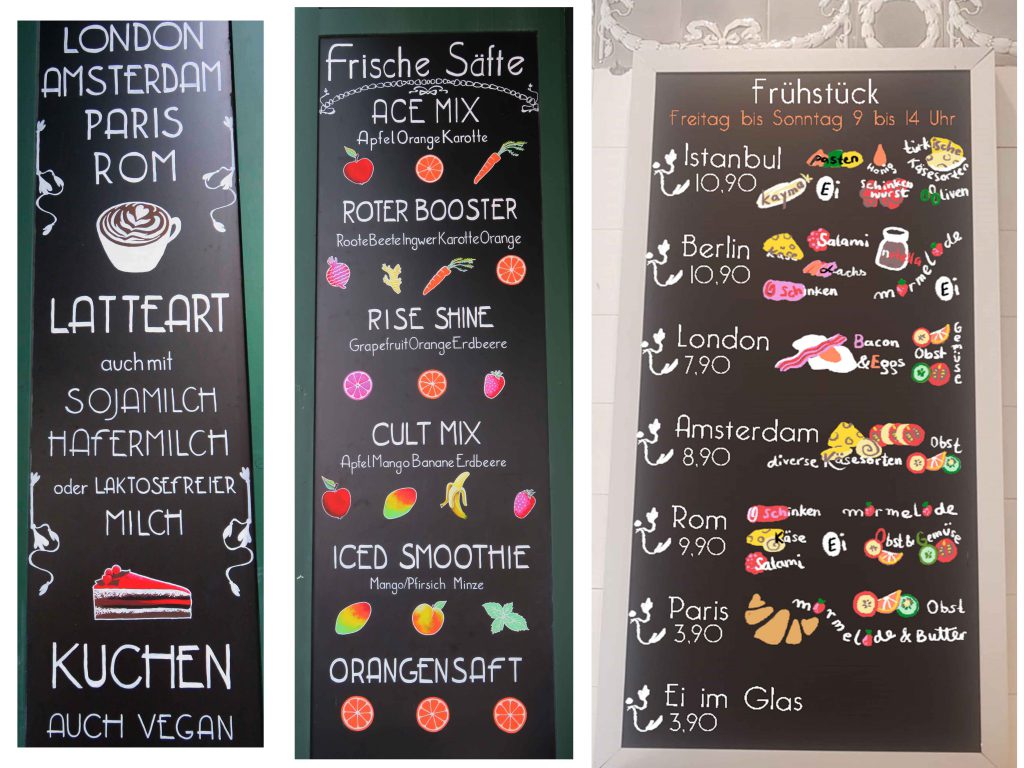 LONDON
AMSTERDAM
PARIS
ROM
LATTEART
auch mit
SOJAMILCH
HAFERMILCH
oder LAKTOSEFREIER
MILCH
KUCHEN
AUCH VEGAN
Frische Säfte
ACE MIX
Apfel Orange Karotte
ROTER BOOSTER
Roote Beete Ingwer Karotte Orange
RISE SHINE
Grapefruit Orange Erdbeere
CULT MIX
Apfel Mango Banane Erdbeere
ICED SMOOTHIE
Mango/Pfirsich Minze
ORANGENSAFT
Frühstück
Freitag bis Sonntag 9 bis 14 Uhr
Istanbul
10,90
Pasten
Honig
türkische
Käsesorten
Kaymak
Ei
Schinken
wurst
Oliven
Berlin
10,90
Käse
Salami
nutella
Lachs
Schinken
marmelade
Ei
London
7,90
Bacon
& Eggs
Obst
Gemüse
Amsterdam
8,90
diverse Käsesorten
Obst
Rom
9,90
Schinken
marmelade
Käse
Ei
Obst & Gemüse
Salami
Paris
3,90
marmelade & Butter
Obst
Ei im Glas
3,90